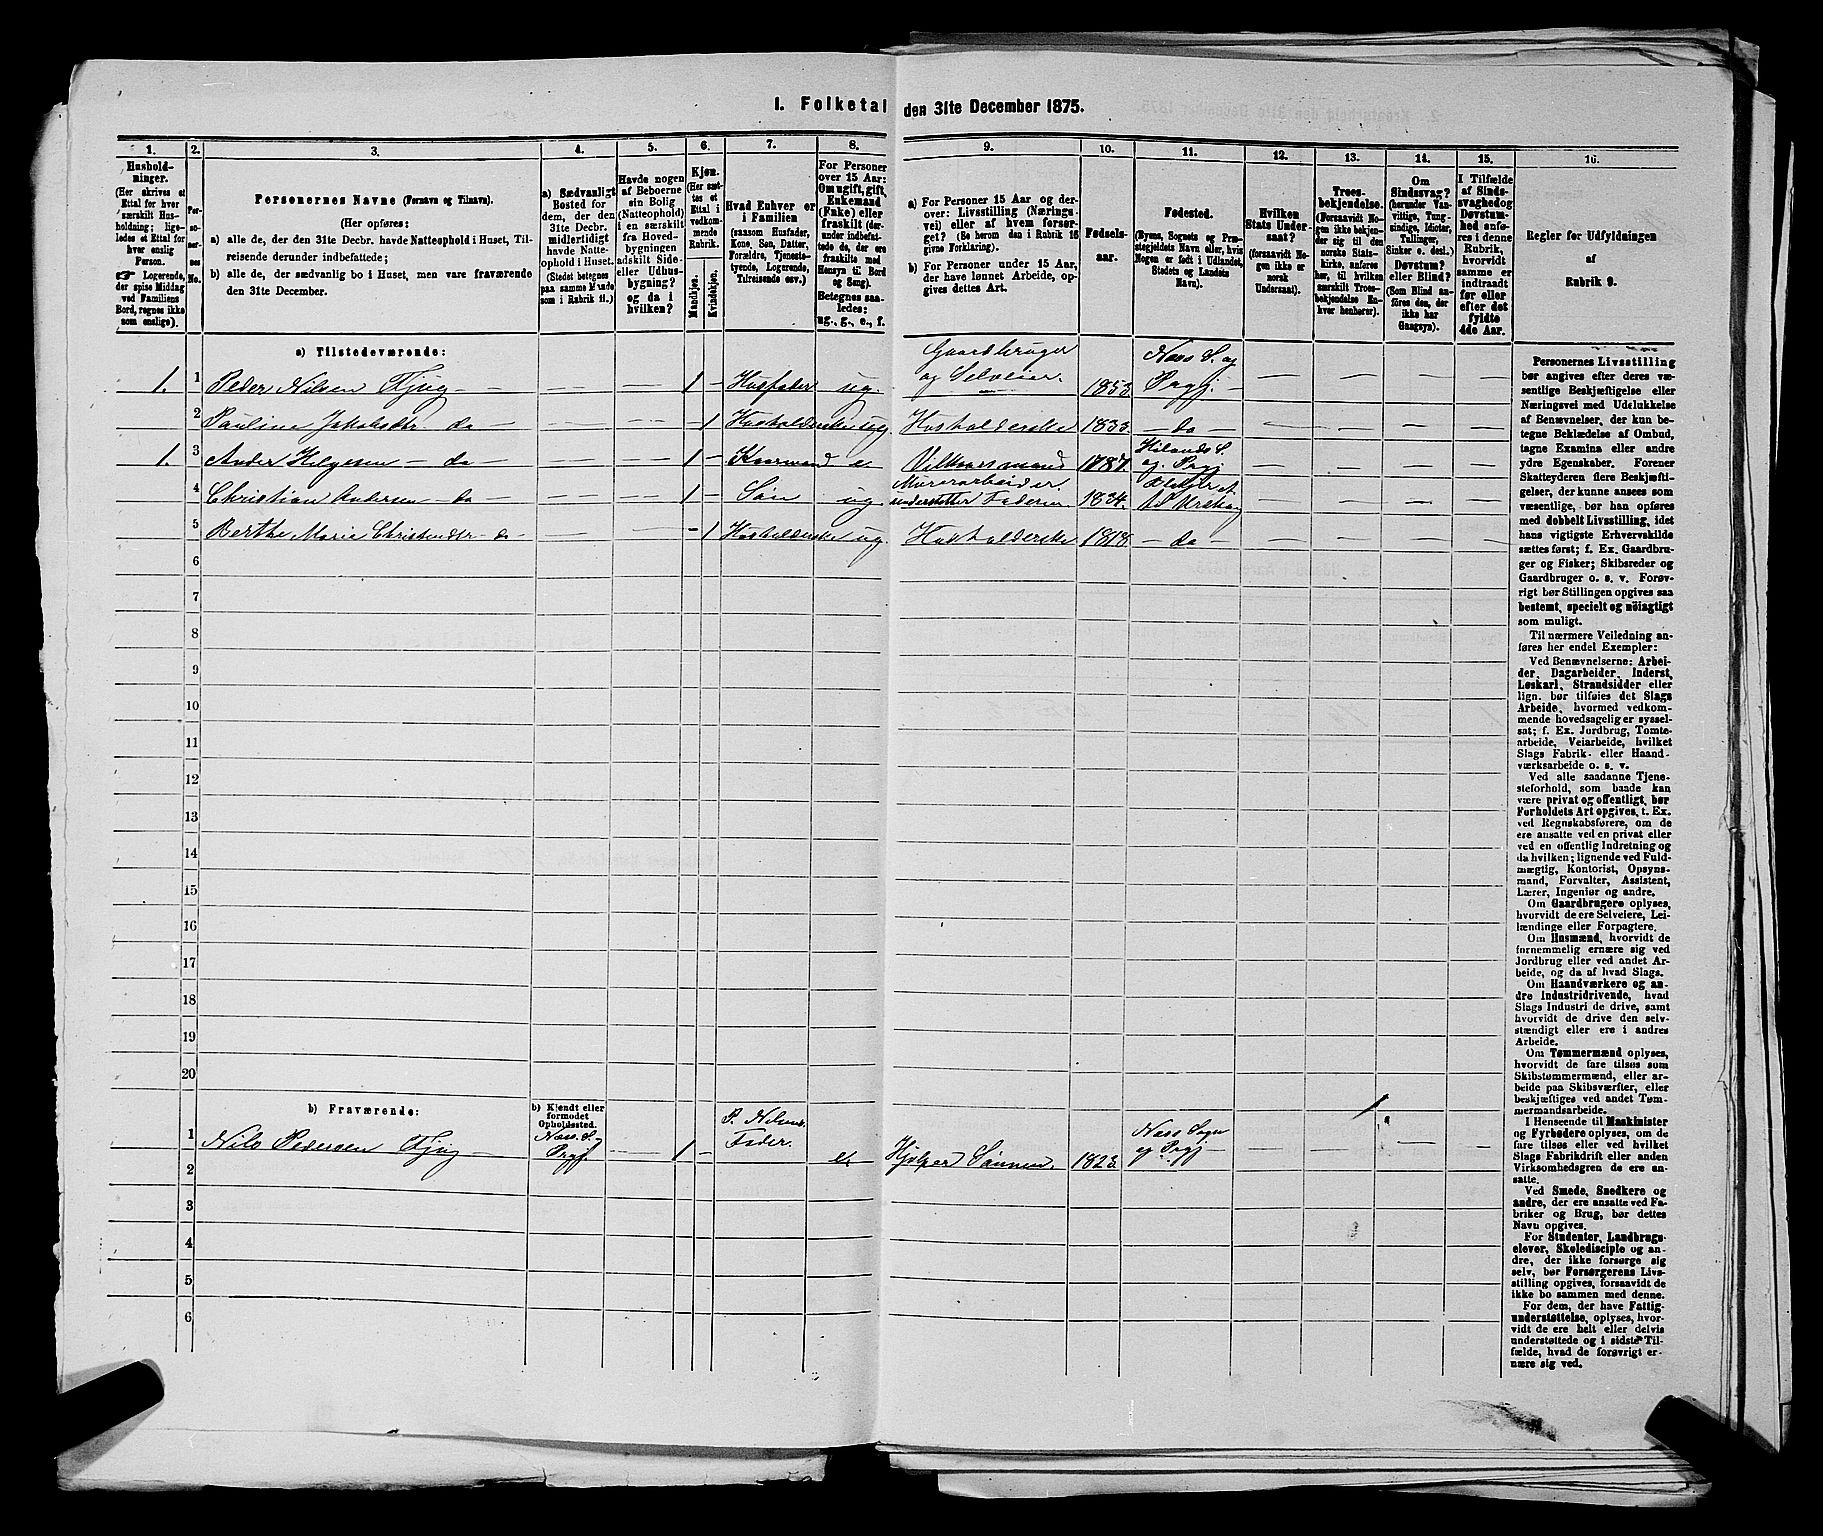 1. Folketal den 31te December 1875.
1. 2. 3. 4. 5. 6. 7. 8. 9. 10. 11. 12. 13. 14. 15. 16.
Hushold-
ninger.
(Her skrives et
Ettal for hver
særskilt Hus-
holdning; lige-
ledes et Ettal for
hver enslig
Person.
☞ Logerende,
der spise Middag
ved Familiens
Bord, regnes ikke
som enslige).
Per-
so-
ner-
nes
No.
Personernes Navne (Fornavn og Tilnavn).
(Her opføres:
a) alle de, der den 31te Decbr. havde Natteophold i Huset, Til-
reisende derunder indbefattede;
b) alle de, der sædvanlig bo i Huset, men vare fraværende
den 31te December.
a) Sædvanligt
Bosted for
dem, der den
31te Decbr.
midlertidigt
havde Natte-
ophold i Huset.
(Stedet betegnes
paa samme Maade
som i Rubrik 11.)
Havde nogen
af Beboerne
sin Bolig
(Natteophold)
i en særskilt
fra Hoved-
bygningen
adskilt Side-
eller Udhus-
bygning?
og da i
hvilken?
Kjøn.
(Her sæt-
tes et
Ettal i
vedkom-
mende
Rubrik.
Mandkjøn.
Kvindekjøn.
Hvad Enhver er
i Familien
(saasom Husfader,
Kone, Søn, Datter,
Forældre, Tjeneste-
tyende, Logerende,
Tilreisende osv.)
For Personer
over 15 Aar:
Om ugift, gift,
Enkemand
(Enke) eller
fraskilt (der-
under indbefat-
tede de, der ere
fraskilte med
Hensyn til Bord
og Seng).
Betegnes saa-
ledes:
ug., g., e., f.
a) For Personer 15 Aar og der-
over: Livsstilling (Nærings-
vei) eller af hvem forsør-
get? (Se herom den i Rubrik 16
givne Forklaring).
b) For Personer under 15 Aar,
der have lønnet Arbeide, op-
gives dettes Art.
Fødsels-
aar.
Fødested.
(Byens, Sognets og Præ-
stegjeldets Navn eller, hvis
Nogen er født i Udlandet,
Stedets og Landets
Navn).
Hvilken
Stats Under-
saat?
(forsaavidt No-
gen ikke er
norsk
Undersaat).
Troes-
bekjendelse.
(Forsaavidt No-
gen ikke bekjen-
der sig til den
norske Stats-
kirke, anføres
her, til hvilken
særskilt Troes-
bekjendelse En-
hver henhører).
Om
Sindssvag?
(herunder Van-
vittige, Tung-
sindige, Idioter,
Tullinger,
Sinker o. desl.)
Døvstum?
eller Blind?
(Som Blind an-
føres den, der
ikke har
Gangsyn).
I Tilfælde
af Sinds-
svaghed og
Døvstum-
hed anfø-
res i denne
Rubrik,
hvorvidt
samme er
indtraadt
før eller
efter det
fyldte
4de Aar.
Regler før Udfyldningen
af
Rubrik 9.
a) Tilstedeværende:
1. 1 Peder Nilsen Fjug — — — 1 — Husfader ug. Gaardbruger og Selveier. 1853 Næs S. og Prgj. — — — — —
2 Pauline Jakobsdtr. do — — — 1 Husholderske ug. Husholderske 1833 — do — — — — —
1. 3 Ander Helgesen — do — — — 1 — Kaarmand e Vilkaarsmand 1787 S. og Prgj. — — — —
4 Christian Andersen — do — — — 1 — Søn ug. Murerarbeider understøtter Faderen 1834. — — — —
5 Berthe Marie Christensdtr — do — — 1 Husholderske ug. Husholderske 1818 — do — — — — —
6
7
8
9
10
11
12
13
14
15
16
17
18
19
20
b) Fraværende:
b) Kjendt eller
formodet
Opholdssted.
1 Nils Pedersen Fjug Næss S. Prgj. — 1 — P. Nilsens Fader. e. Hjelper Sønnen. 1823 Næss Sogn og Prgj — — — — —
2
3
4
5
6
Personernes Livsstilling
bør angives efter deres væ-
sentlige Beskjæftigelse eller
Næringsvei med Udelukkelse
af Benævnelser, der kun be-
tegne Beklædelse af Ombud,
tagne Examina eller andre
ydre Egenskaber. Forener
Skatteyderen flere Beskjæfti-
gelser, der kunne ansees som
væsentlige, bør han opføres
med dobbelt Livsstilling, idet
hans vigtigste Erhvervskilde
sættes først; f. Ex. Gaardbru-
ger og Fisker; Skibsreder og
Gaardbruger o. s. v. Forøv-
rigt bør Stillingen opgives saa
bestemt, specielt og nöiagtigt
som muligt.
Til nærmere Veiledning an-
føres her endel Exempler:
Ved Benævnelserne: Arbei-
der, Dagarbeider, Inderst,
Løskarl, Strandsidder eller
lign. bør tilføies det Slags
Arbeide, hvormed vedkom-
mende hovedsagelig er syssel-
sat; f. Ex. Jordbrug, Tomte-
arbeide, Veiarbeide, hvilket
Slags Fabrik- eller Haand-
værksarbeide o. s. v.
Ved alle saadanne Tjene-
steforhold, som baade kan
være privat og offentligt, bør
Forholdets Art opgives, t. Ex.
ved Regnskabsførere, om de
ere ansatte ved en privat eller
ved en offentlig Indretning og
da hvilken; lignende ved Fuld-
mægtig, Kontorist, Opsyns-
mand, Forvalter, Assistent,
Lærer, Ingeniør og andre.
Om Gaardbrugere oplyses,
hvorvidt de ere Selveiere, Lei-
lændinge eller Forpagtere.
Om Husmænd, hvorvidt de
fornemmelig ernære sig ved
Jordbrug eller ved andet Ar-
beide, og da af hvad Slags.
Om Haandværkere og an-
dre Industridrivende, hvad
Slags Industri de drive, samt
hvorvidt de drive den selv-
stændigt eller ere i andres
Arbeide.
Om Tømmermænd oplyses,
hvorvidt de fare tilsøs som
Skibstømmermænd, eller ar-
beide paa Skibsværfter, eller
beskjæftiges ved andet Tøm-
mermandsarbeide.
I Henseende til Maskinister
og Fyrbødere oplyses, om de
fare tilsøs eller ved hvilket
Slags Fabrikdrift eller anden
Virksomhedsgren de ere an-
satte.
Ved Smede, Snedkere og
andre, der ere ansatte ved Fa-
briker og Brug, bør dettes
Navn opgives.
For Studenter, Landbrugs-
elever, Skoledisciple og an-
dre, der ikke forsørge sig
selv, bør Forsørgerens Livs-
stilling opgives, forsaavidt de
ikke bo sammen med denne.
For dem, der have Fattig-
understøttelse, oplyses, hvor-
vidt de ere helt eller delvis
understøttede og i sidste Til-
fælde, hvad de forøvrigt er-
nære sig ved.